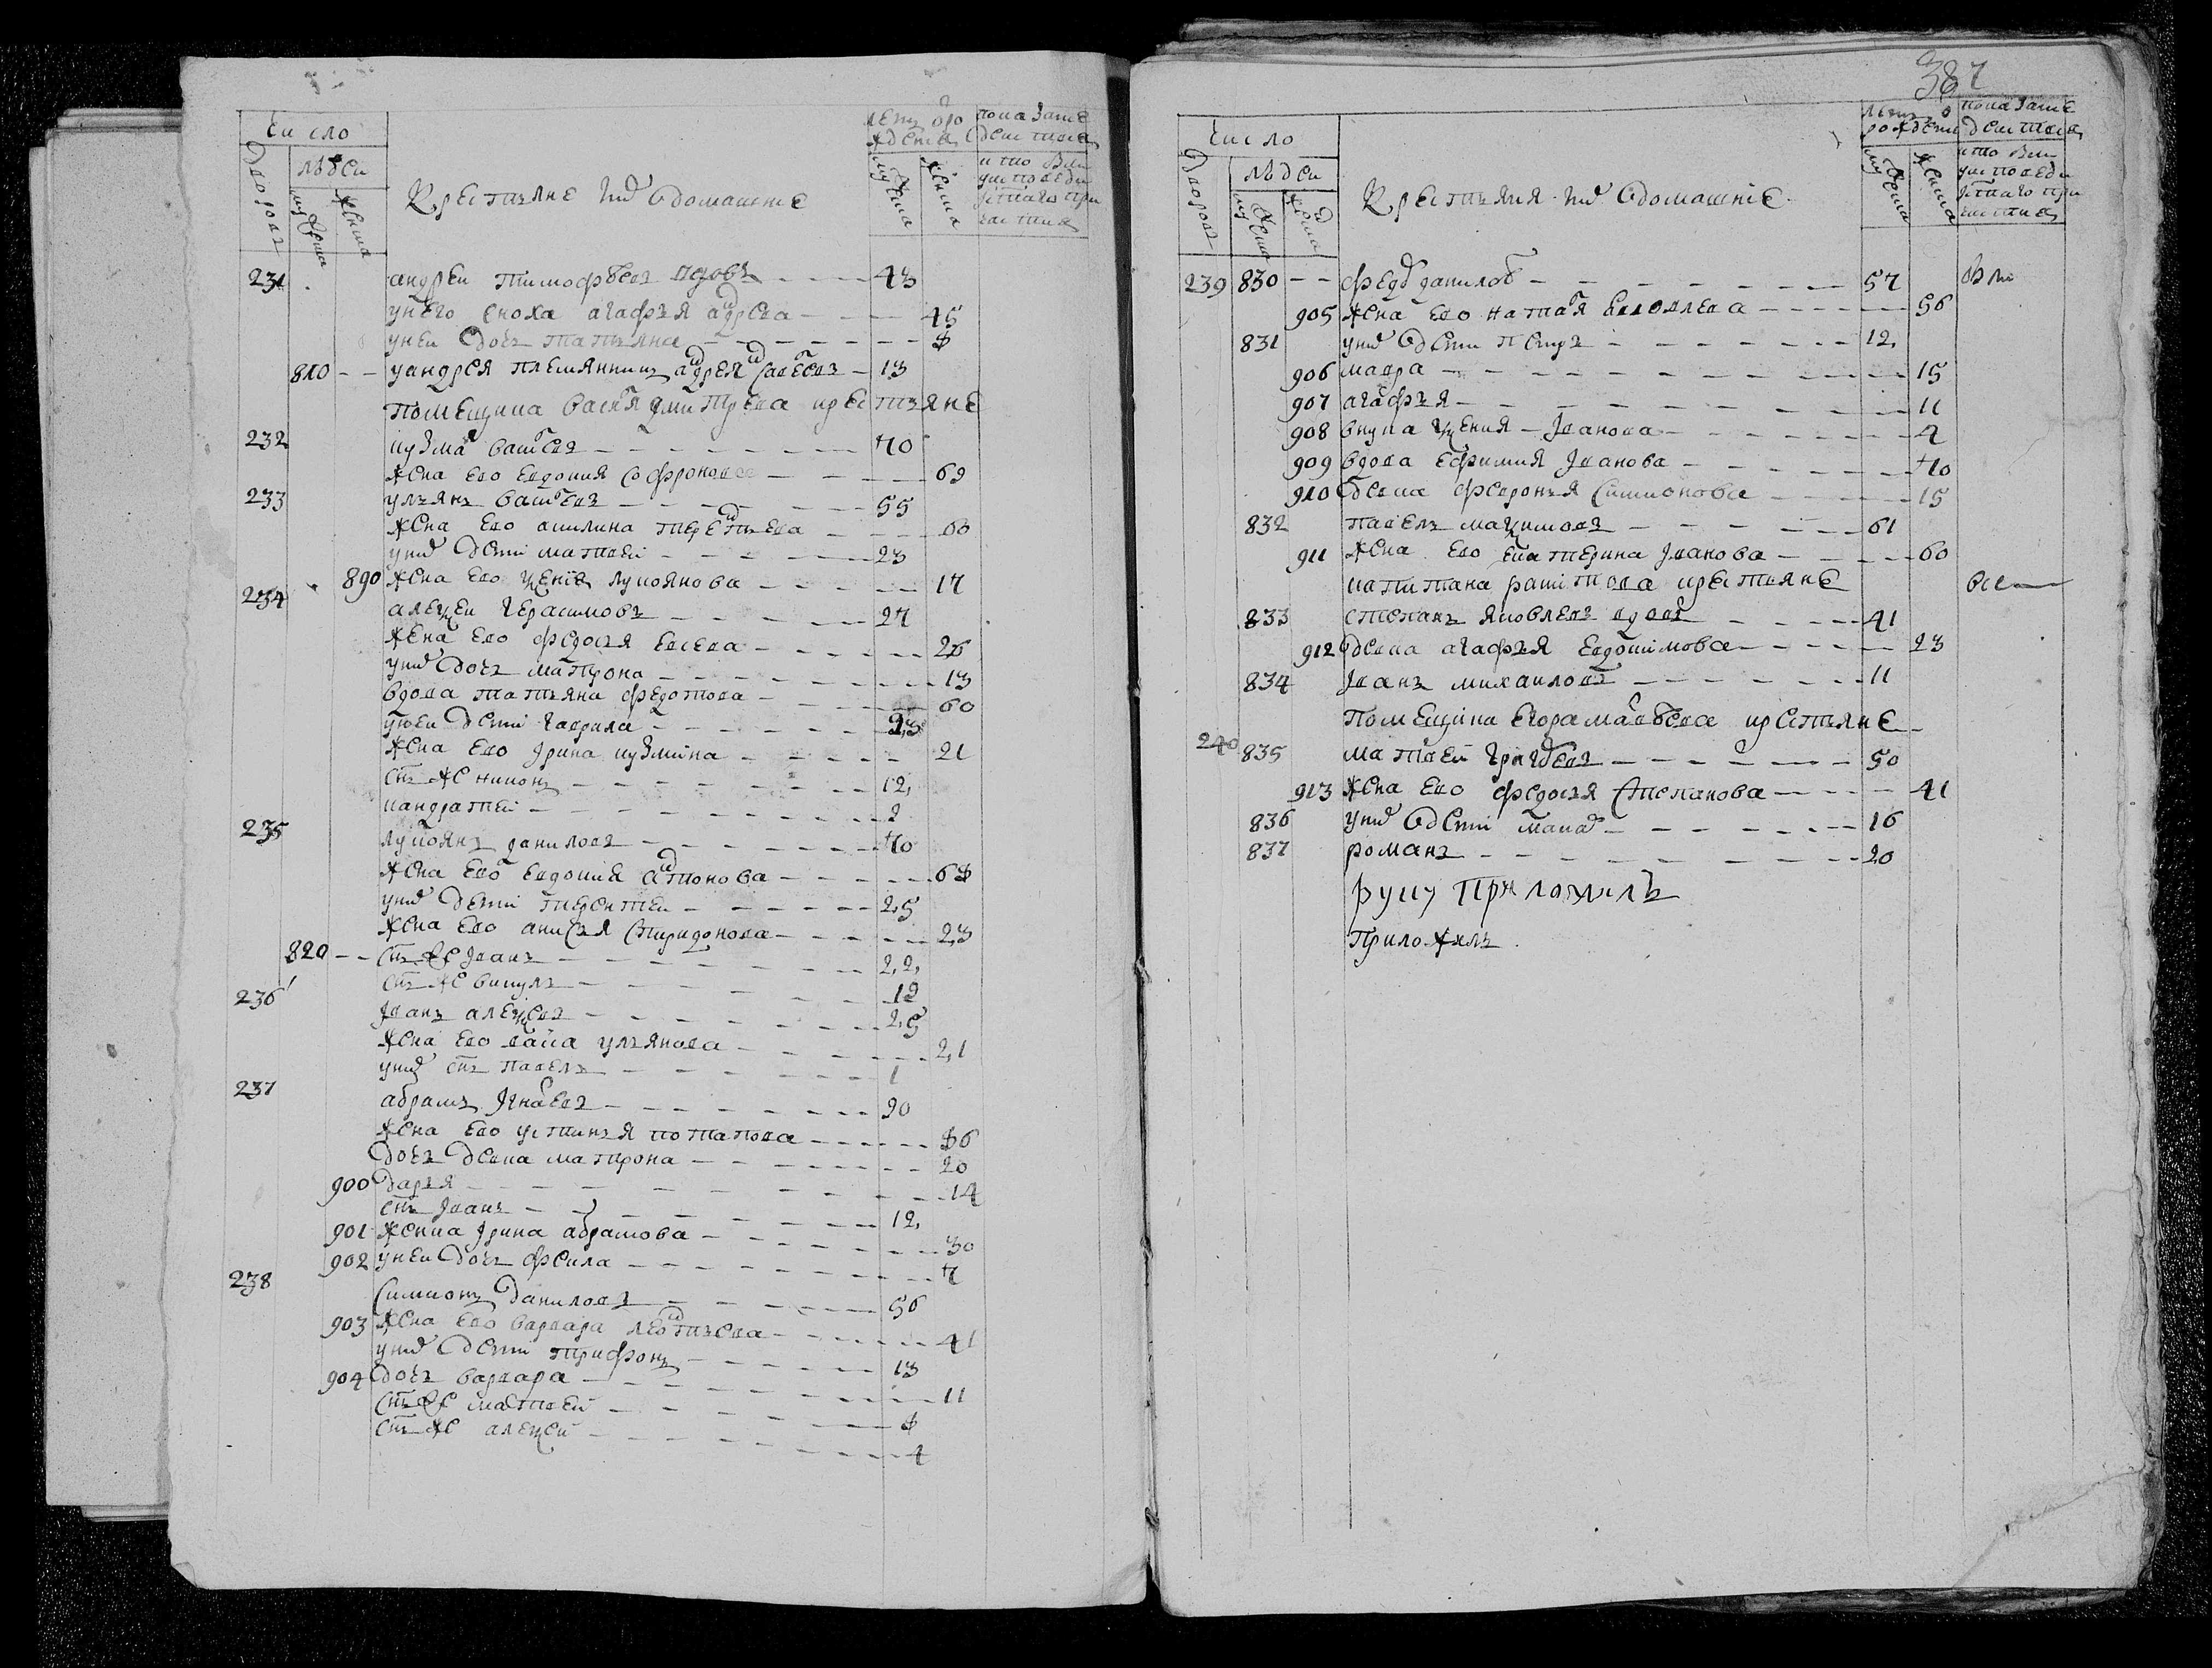 число
дворовъ
людеи
мужеска
женска
Крестьяне їихъ домашние
летъ о рождениа
мужеска
женска
показание
231 андреи тимофеевъ вдовъ 43
у него сноха агафья андреева 45
у неи дочь татьяна 8
810 у андрея племянникъ андреи савеевъ 13
помещика василья дмитреева крестьяне
232 кузма васильевъ 70
жена ево евдокия софронова 69
233 ульянъ васильевъ 55
жена ево акилина терентьева 60
у них дети матвеи 23
890 жена ево ксениа лукоянова 17
234 алексеи герасимовъ 27
жена ево федосья евсева 26
у них дочь матрона 13
вдова татьяна федотова 60
у неи дети гаврила 23
жена ево ирина кузмина 21
сынъ же никонъ 12
кандратеи 2
235 лукоянъ даниловъ 70
жена ево евдокия антонова 68
у них дети терентеи 25
жена ево анисья спиридонова 23
820 сынъ же иванъ 22
сынъ же викулъ 12
236 иванъ алексеевъ 25
жена ево ульянова 21
у них сынъ павелъ 1
237 абрамъ игнатьевъ 90
жена ево устинья потапова 86
дочь девка матрона 20
900 дарья 14
сынъ иванъ 12
901 женка ирина абрамова 30
902 у неи дочь фекла 7
238 симионъ даниловъ 56
903 жена ево варвара леонтьева 41
у них дети трифонъ 13
904 дочь варвара 11
сынъ же матвеи 8
сынъ же алексеи 4
387
число
дворовъ
людеи
мужеска
женска
Крестьяня їихъ домашние
летъ о рождени
мужеска
женска
показание
239 830 федоръ даниловъ 57
905 жена ево наталя 56
831 у них дети петръ 12
906 мавра 15
907 агафья 11
908 внука ксения иванова 4
909 вдова ефимия иванова 70
910 девка февронья симионова 15
832 павелъ максимовъ 61
911 жена ево екатерина иванова 60
капитана крестьяне
833 степанъ яковлевъ вдовъ 41
912 девка агафья евдокимова 23
834 иванъ михаиловъ 11
помещика егора матвеева крестьяне
240 835 матвеи григорьевъ 50
913 жена ево федосья степанова 41
836 у них дети 16
837 романъ 20
руку приложилъ
приложилъ